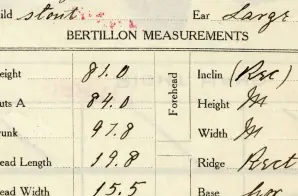 ild stout Ear Large
BERTILLON MEASUREMENTS
eight 81.0 Forehead Inclin (Rec)
uts A 84.0 Height M
runk 97.8 Width M
ead Length 19.8 Ridge Rect
ead Width 15.5 Base